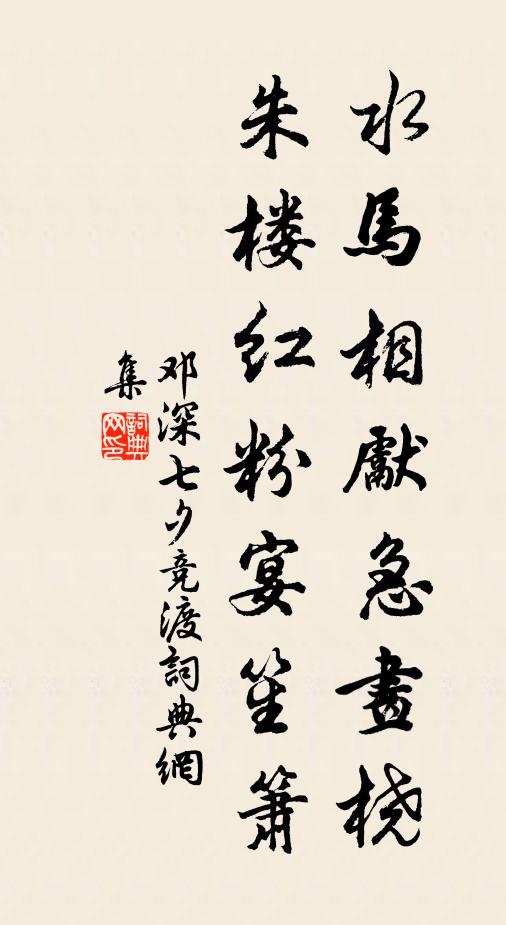 水馬相獻急畫桡
朱楼红粉宴笙簫
邓深七夕竞渡詞典網
集
詞典网印